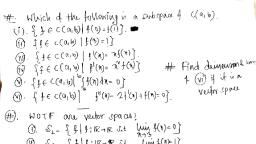 #. Which of the following is a subspace of C(a,b).
(i). { f ∈ C(a,b) | f(0) = f(1) }.
(ii) { f ∈ C(a,b) | f(1) = 1 }
(iii) { f ∈ C(a,b) | f'(x) = x f(x) }
(iv) { f ∈ C(a,b) | f'(x) = x² + f(x) }
(v). { f ∈ C(a,b) | ∫ f(x) dx = 0 }
(vi) { f ∈ C(a,b) | f''(x) - 2f'(x) + f(x) = 0 }.
# Find
of (vi) if it is a
vector space
#. WOTF are vector space:
(i) = { f | f: R→R st lim f(x) = 0 }
x→3
(ii) = { f | f: R→R st lim